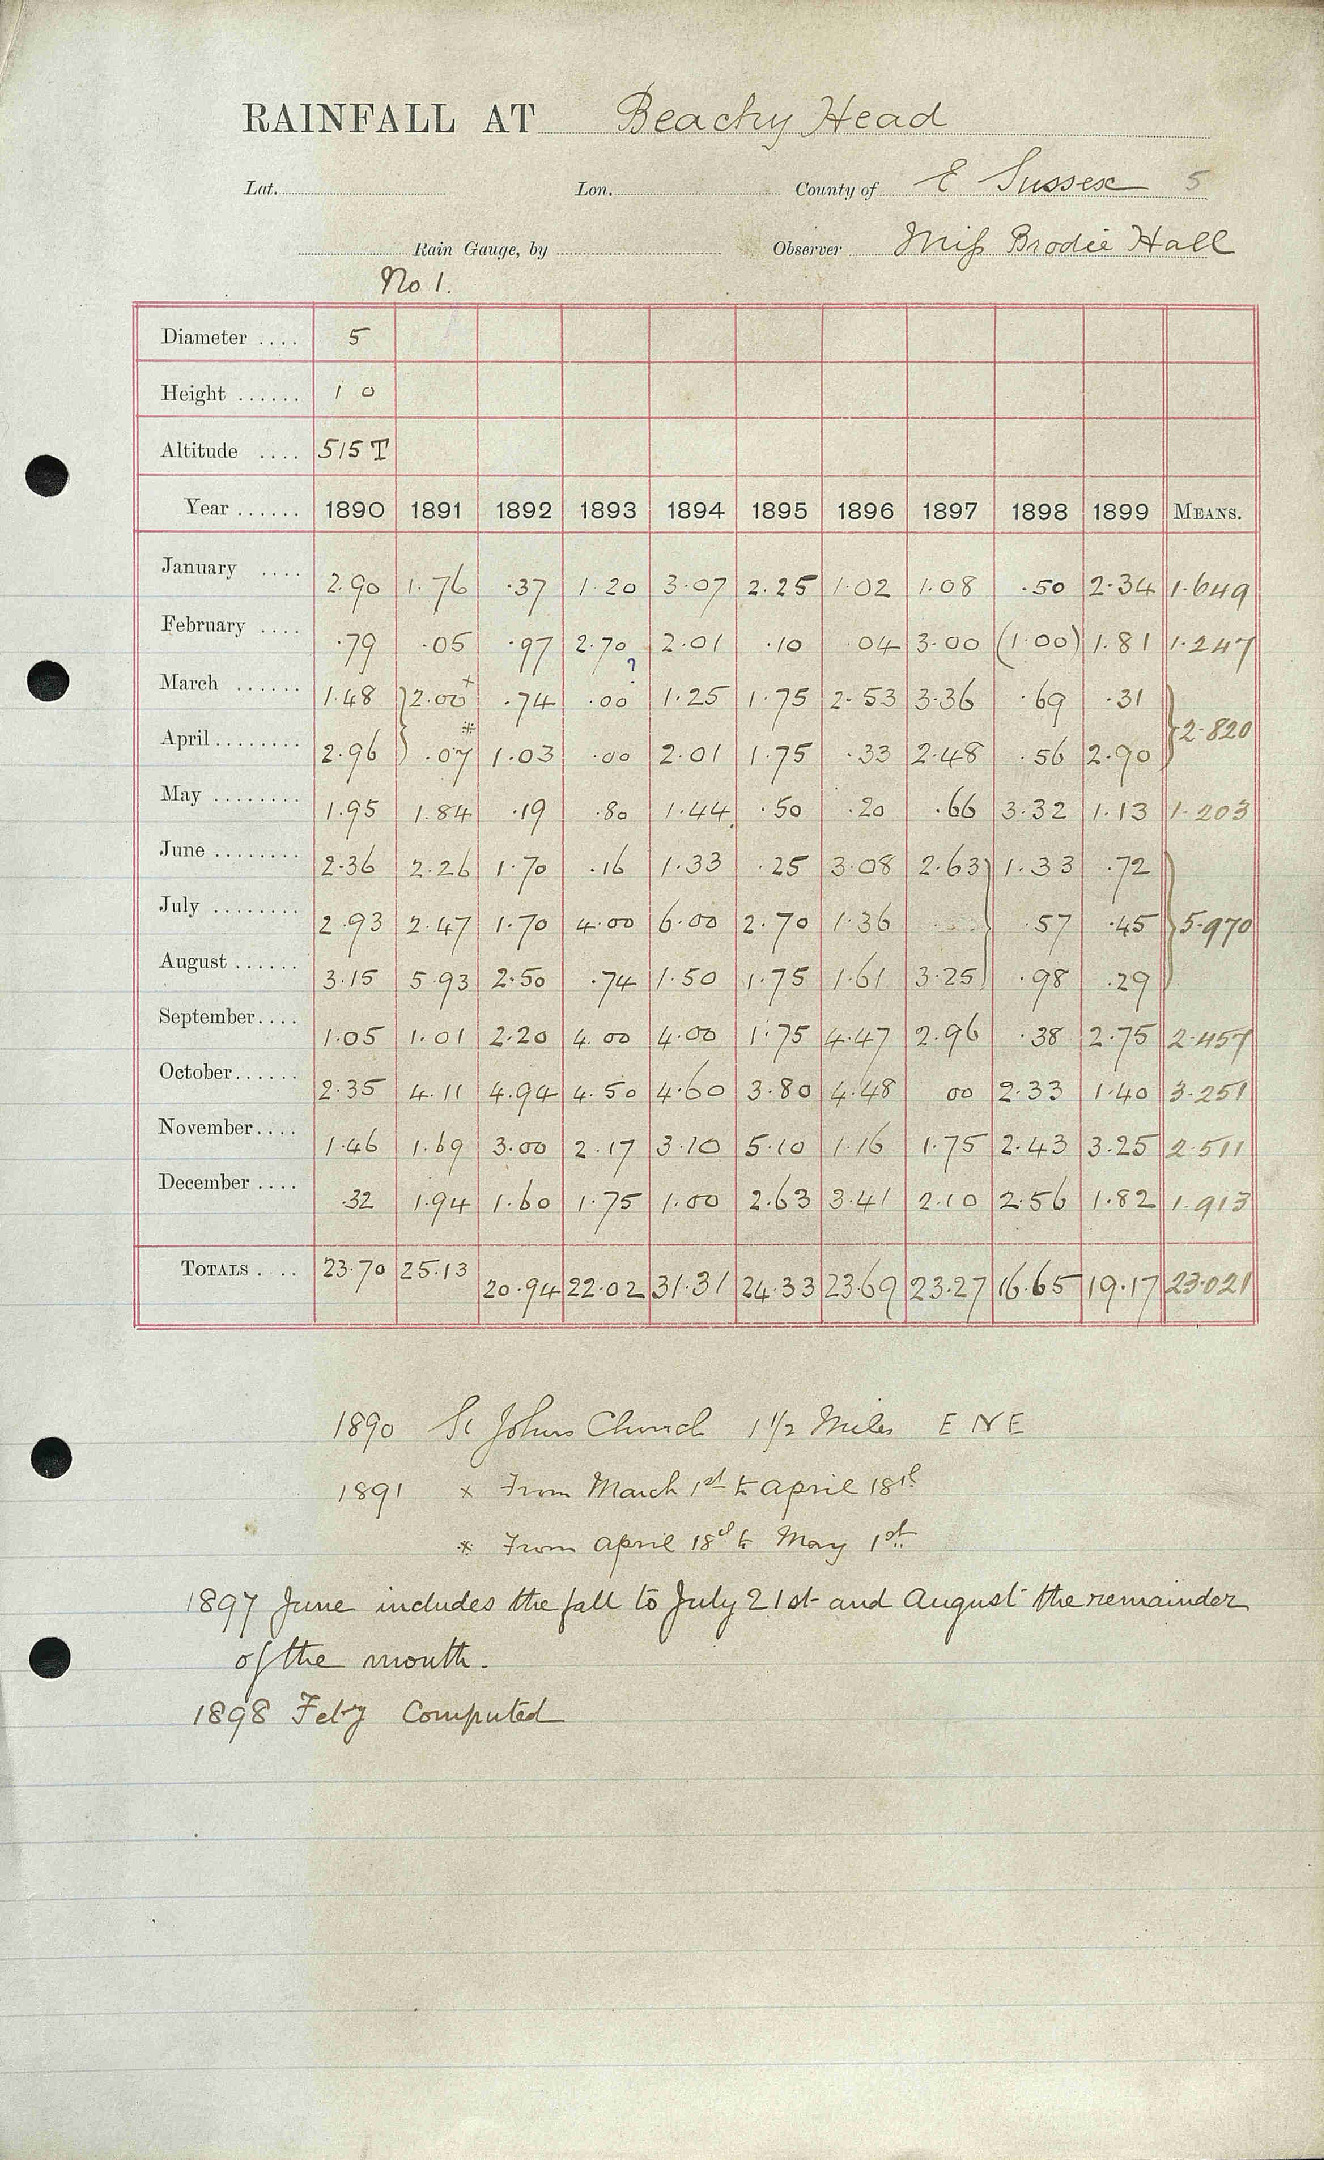 RAINFALL AT Beachy Head
Lat. Lon. County of E Sussex 5
Rain Gauge, by Observer Miss Brodie Hall
No 1.
Diameter .... 5
Height ...... 10
Altitude .... 515 T
Year ...... 1890 1891 1892 1893 1894 1895 1896 1897 1898 1899 MEANS.
January .... 2.90 1.76 .37 1.20 3.07 2.25 1.02 1.08 .50 2.34 1.649
February .... .79 .05 .97 2.70 2.01 .10 .04 3.00 (1.00) 1.81 1.247
March ...... 1.48 } 2.00 × .74 .00 ? 1.25 1.75 2.53 3.36 .69 .31
April ........ 2.96 } .07 * 1.03 .00 2.01 1.75 .33 2.48 .56 2.90 } 2.820
May ........ 1.95 1.84 .19 .80 1.44 .50 .20 .66 3.32 1.13 1.203
June ........ 2.36 2.26 1.70 .16 1.33 .25 3.08 2.63 } 1.33 .72
July ........ 2.93 2.47 1.70 4.00 6.00 2.70 1.36 ... } .57 .45 } 5.970
August ...... 3.15 5.93 2.50 .74 1.50 1.75 1.61 3.25 } .98 .29
September .... 1.05 1.01 2.20 4.00 4.00 1.75 4.47 2.96 .38 2.75 2.457
October ...... 2.35 4.11 4.94 4.50 4.60 3.80 4.48 00 2.33 1.40 3.251
November .... 1.46 1.69 3.00 2.17 3.10 5.10 1.16 1.75 2.43 3.25 2.511
December .... .32 1.94 1.60 1.75 1.00 2.63 3.41 2.10 2.56 1.82 1.913
TOTALS .... 23.70 25.13 20.94 22.02 31.31 24.33 23.69 23.27 16.65 19.17 23.021
1890 St Johns Church 1 1/2 Miles E N E
1891 × From March 1st to April 18th
* From April 18th to May 1st
1897 June includes the fall to July 21st and August the remainder
of the month.
1898 Feby Computed